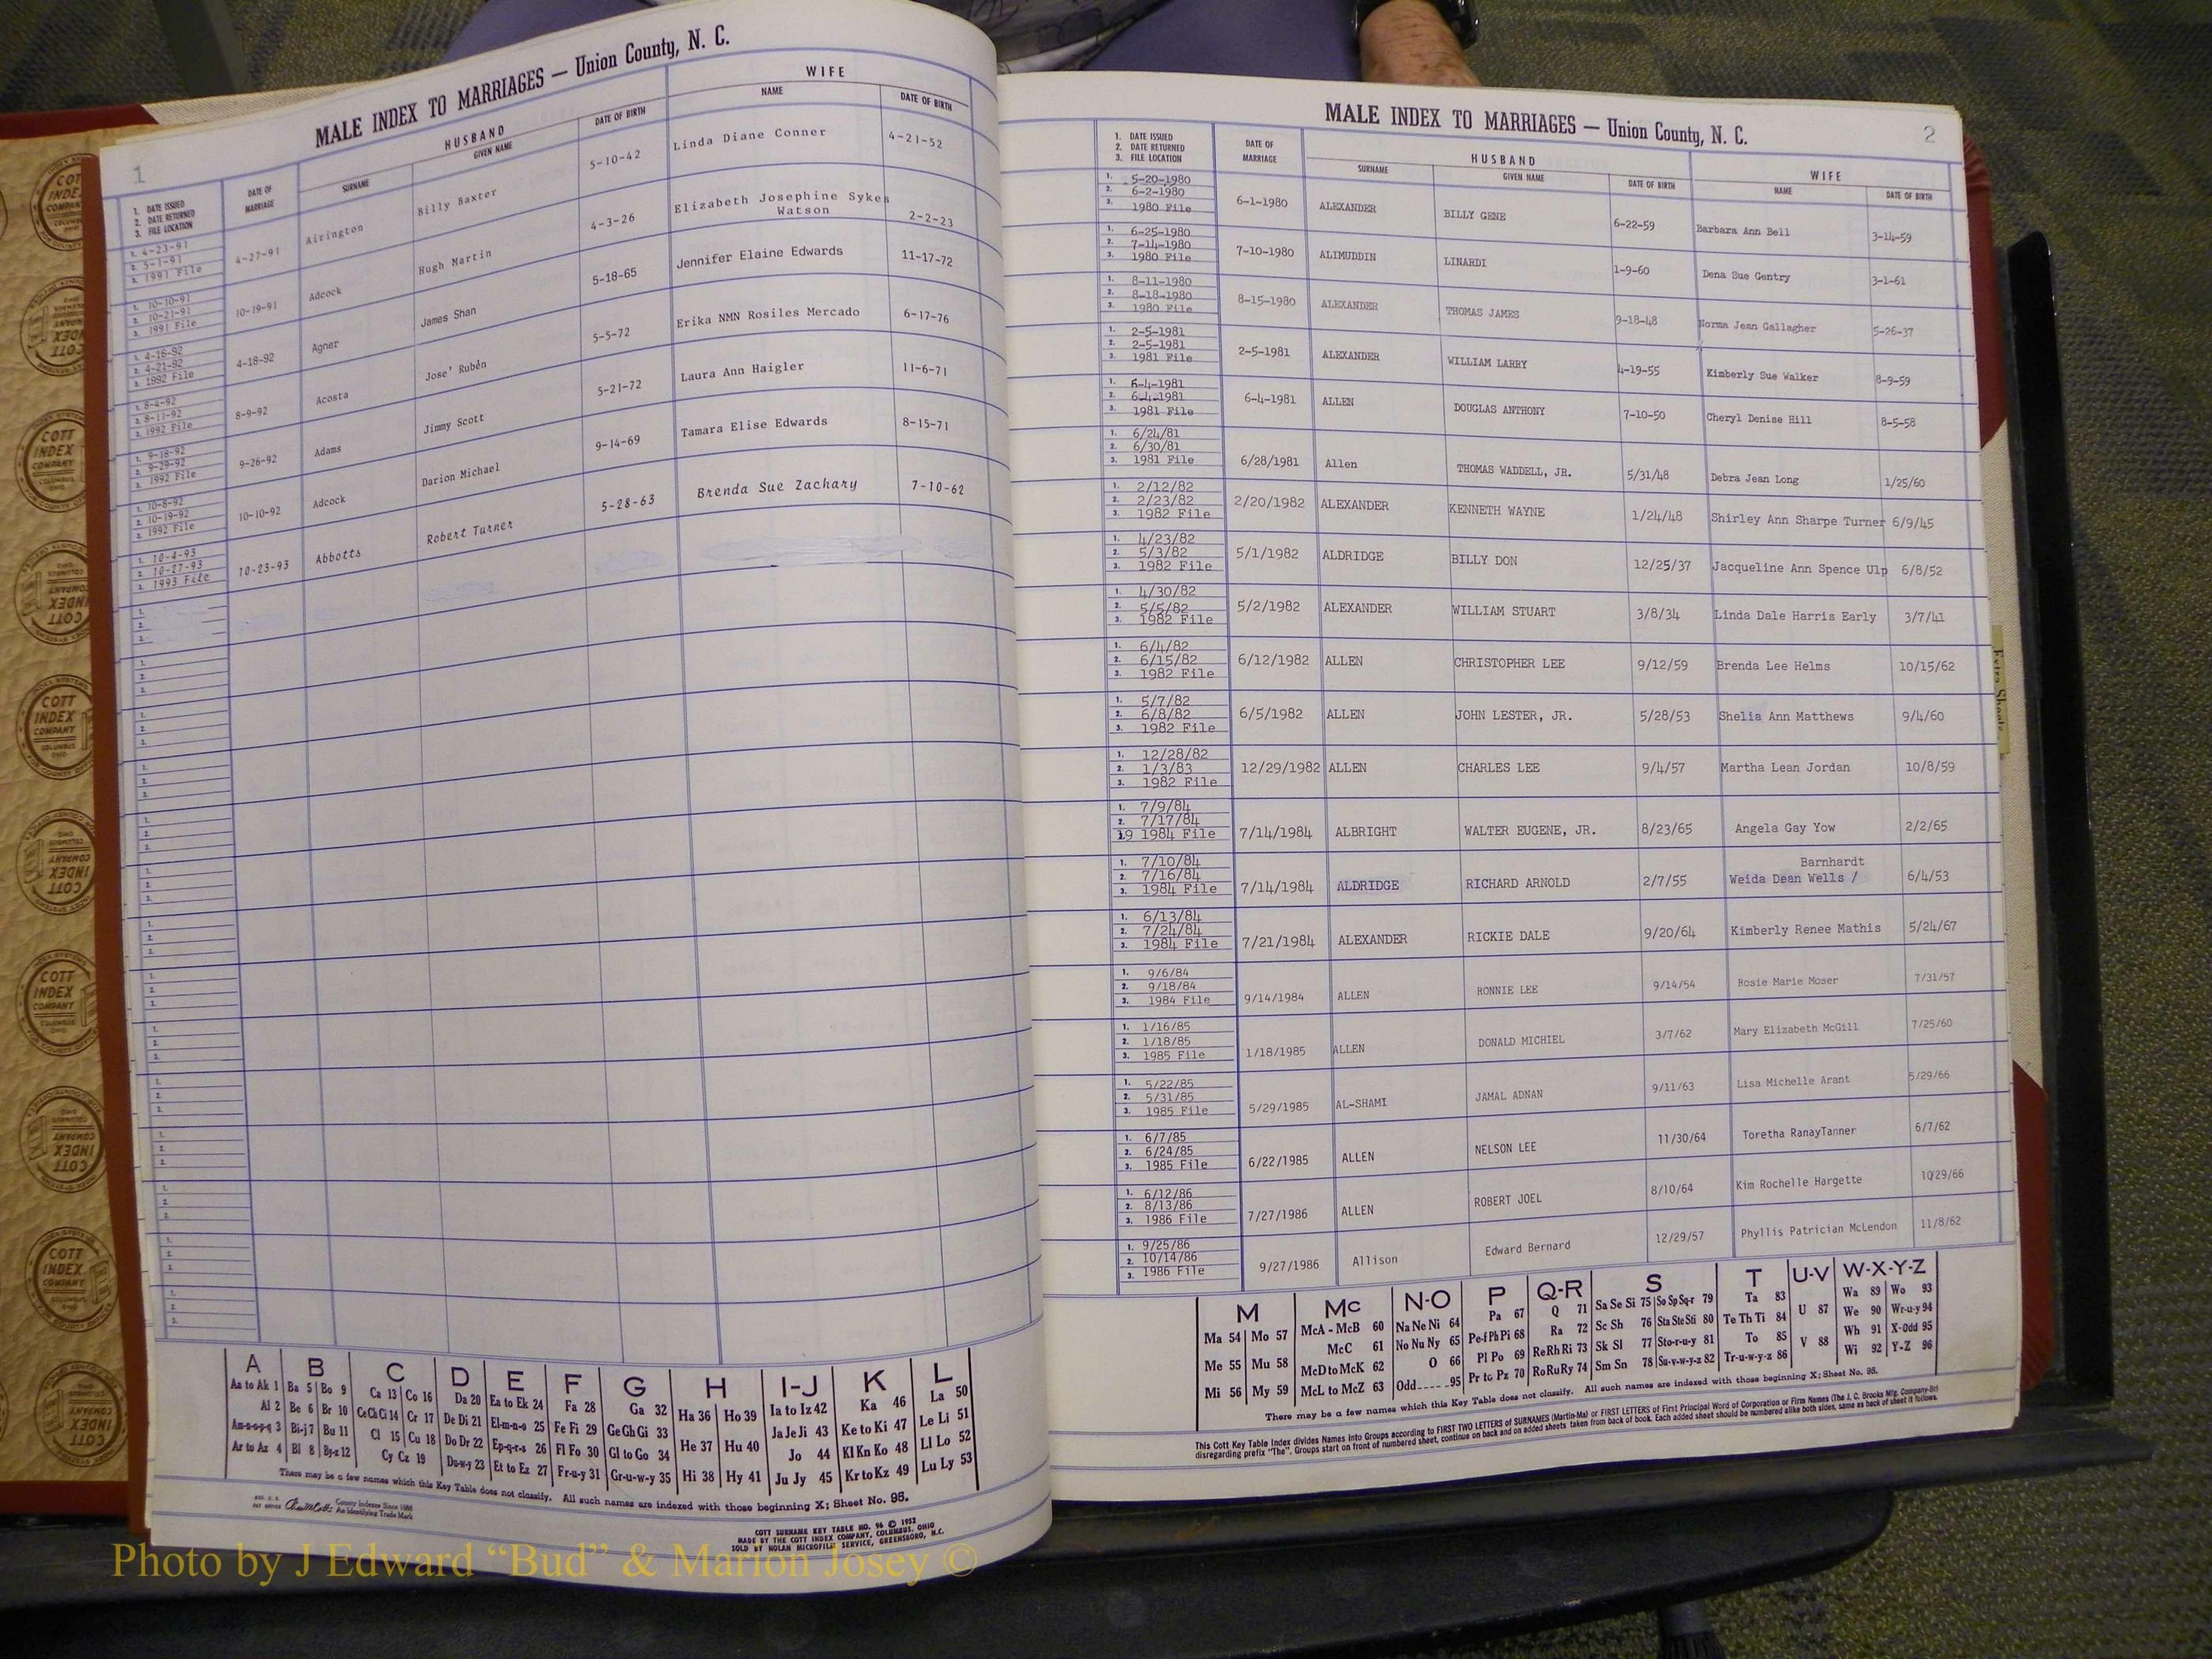 1
MALE INDEX TO MARRIAGES — Union County, N. C.
1. DATE ISSUED
2. DATE RETURNED
3. FILE LOCATION
DATE OF MARRIAGE
HUSBAND
SURNAME GIVEN NAME DATE OF BIRTH
WIFE
NAME DATE OF BIRTH
1. 4-23-91
2. 5-1-91
3. 1991 File
4-27-91 Airington Billy Baxter 5-10-42 Linda Diane Conner 4-21-52
1. 10-10-91
2. 10-21-91
3. 1991 File
10-19-91 Adcock Hugh Martin 4-3-26 Elizabeth Josephine Sykes
Watson 2-2-23
1. 4-16-92
2. 4-21-92
3. 1992 File
4-18-92 Agner James Shan 5-18-65 Jennifer Elaine Edwards 11-17-72
1. 8-4-92
2. 8-11-92
3. 1992 File
8-9-92 Acosta Jose' Rubén 5-5-72 Erika NMN Rosiles Mercado 6-17-76
1. 9-18-92
2. 9-29-92
3. 1992 File
9-26-92 Adams Jimmy Scott 5-21-72 Laura Ann Haigler 11-6-71
1. 10-8-92
2. 10-19-92
3. 1992 File
10-10-92 Adcock Darion Michael 9-14-69 Tamara Elise Edwards 8-15-71
1. 10-4-93
2. 10-27-93
3. 1993 File
10-23-93 Abbotts Robert Turner 5-28-63 Brenda Sue Zachary 7-10-62
A B C D E F G H I-J K L
Aa to Ak 1 Ba 5 Bo 9 Ca 13 Co 16 Da 20 Ea to Ek 24 Fa 28 Ga 32 Ha 36 Ho 39 Ia to Iz 42 Ka 46 La 50
Al 2 Be 6 Br 10 Ce Ch Ci 14 Cr 17 De Di 21 El-m-n-o 25 Fe Fi 29 Ge Gh Gi 33 Ja Je Ji 43 Ke to Ki 47 Le Li 51
Am-n-o-p-q 3 Bi-j 7 Bu 11 Cl 15 Cu 18 Do Dr 22 Ep-q-r-s 26 Fl Fo 30 Gl to Go 34 He 37 Hu 40 Jo 44 Kl Kn Ko 48 Ll Lo 52
Ar to Az 4 Bl 8 By-z 12 Cy Cz 19 Du-w-y 23 Et to Ez 27 Fr-u-y 31 Gr-u-w-y 35 Hi 38 Hy 41 Ju Jy 45 Kr to Kz 49 Lu Ly 53
There may be a few names which this Key Table does not classify. All such names are indexed with those beginning X; Sheet No. 95.
County Indexes Since 1888
An Identifying Trade Mark
COTT SURNAME KEY TABLE NO. 96 © 1952
MADE BY THE COTT INDEX COMPANY, COLUMBUS, OHIO
SOLD BY NOLAN MICROFILM SERVICE, GREENSBORO, N.C.
MALE INDEX TO MARRIAGES — Union County, N. C.
2
1. DATE ISSUED
2. DATE RETURNED
3. FILE LOCATION
DATE OF MARRIAGE
HUSBAND
SURNAME GIVEN NAME DATE OF BIRTH
WIFE
NAME DATE OF BIRTH
1. 5-20-1980
2. 6-2-1980
3. 1980 File
6-1-1980 ALEXANDER BILLY GENE 6-22-59 Barbara Ann Bell 3-14-59
1. 6-25-1980
2. 7-14-1980
3. 1980 File
7-10-1980 ALIMUDDIN LINARDI 1-9-60 Dena Sue Gentry 3-1-61
1. 8-11-1980
2. 8-18-1980
3. 1980 File
8-15-1980 ALEXANDER THOMAS JAMES 9-18-48 Norma Jean Gallagher 5-26-37
1. 2-5-1981
2. 2-5-1981
3. 1981 File
2-5-1981 ALEXANDER WILLIAM LARRY 4-19-55 Kimberly Sue Walker 8-9-59
1. 6-4-1981
2. 6-4-1981
3. 1981 File
6-4-1981 ALLEN DOUGLAS ANTHONY 7-10-50 Cheryl Denise Hill 8-5-58
1. 6/24/81
2. 6/30/81
3. 1981 File
6/28/1981 Allen THOMAS WADDELL, JR. 5/31/48 Debra Jean Long 1/25/60
1. 2/12/82
2. 2/23/82
3. 1982 File
2/20/1982 ALEXANDER KENNETH WAYNE 1/24/48 Shirley Ann Sharpe Turner 6/9/45
1. 4/23/82
2. 5/3/82
3. 1982 File
5/1/1982 ALDRIDGE BILLY DON 12/25/37 Jacqueline Ann Spence Ulp 6/8/52
1. 4/30/82
2. 5/5/82
3. 1982 File
5/2/1982 ALEXANDER WILLIAM STUART 3/8/34 Linda Dale Harris Early 3/7/41
1. 6/4/82
2. 6/15/82
3. 1982 File
6/12/1982 ALLEN CHRISTOPHER LEE 9/12/59 Brenda Lee Helms 10/15/62
1. 5/7/82
2. 6/8/82
3. 1982 File
6/5/1982 ALLEN JOHN LESTER, JR. 5/28/53 Shelia Ann Matthews 9/4/60
1. 12/28/82
2. 1/3/83
3. 1982 File
12/29/1982 ALLEN CHARLES LEE 9/4/57 Martha Lean Jordan 10/8/59
1. 7/9/84
2. 7/17/84
19 1984 File
7/14/1984 ALBRIGHT WALTER EUGENE, JR. 8/23/65 Angela Gay Yow 2/2/65
1. 7/10/84
2. 7/16/84
3. 1984 File
Barnhardt
7/14/1984 ALDRIDGE RICHARD ARNOLD 2/7/55 Weida Dean Wells / 6/4/53
1. 6/13/84
2. 7/24/84
3. 1984 File
7/21/1984 ALEXANDER RICKIE DALE 9/20/64 Kimberly Renee Mathis 5/24/67
1. 9/6/84
2. 9/18/84
3. 1984 File
9/14/1984 ALLEN RONNIE LEE 9/14/54 Rosie Marie Moser 7/31/57
1. 1/16/85
2. 1/18/85
3. 1985 File
1/18/1985 ALLEN DONALD MICHIEL 3/7/62 Mary Elizabeth McGill 7/25/60
1. 5/22/85
2. 5/31/85
3. 1985 File
5/29/1985 AL-SHAMI JAMAL ADNAN 9/11/63 Lisa Michelle Arant 5/29/66
1. 6/7/85
2. 6/24/85
3. 1985 File
6/22/1985 ALLEN NELSON LEE 11/30/64 Toretha RanayTanner 6/7/62
1. 6/12/86
2. 8/13/86
3. 1986 File
7/27/1986 ALLEN ROBERT JOEL 8/10/64 Kim Rochelle Hargette 10/29/66
1. 9/25/86
2. 10/14/86
3. 1986 File
9/27/1986 Allison Edward Bernard 12/29/57 Phyllis Patrician McLendon 11/8/62
M Mc N-O P Q-R S T U-V W-X-Y-Z
Ma 54 Mo 57 McA - McB 60 Na Ne Ni 64 Pa 67 Q 71 Sa Se Si 75 So Sp Sq-r 79 Ta 83 U 87 Wa 89 Wo 93
McC 61 No Nu Ny 65 Pe-f Ph Pi 68 Ra 72 Sc Sh 76 Sta Ste Sti 80 Te Th Ti 84 We 90 Wr-u-y 94
Me 55 Mu 58 McD to McK 62 O 66 Pl Po 69 Re Rh Ri 73 Sk Sl 77 Sto-r-u-y 81 To 85 V 88 Wh 91 X-Odd 95
Mi 56 My 59 McL to McZ 63 Odd 95 Pr to Pz 70 Ro Ru Ry 74 Sm Sn 78 Su-v-w-y-z 82 Tr-u-w-y-z 86 Wi 92 Y-Z 96
There may be a few names which this Key Table does not classify. All such names are indexed with those beginning X; Sheet No. 95.
This Cott Key Table Index divides Names into Groups according to FIRST TWO LETTERS of SURNAMES (Martin-Ma) or FIRST LETTERS of First Principal Word of Corporation or Firm Names (The J. C. Brooks Mfg. Company-Br)
disregarding prefix "The". Groups start on front of numbered sheet, continue on back and on added sheets taken from back of book. Each added sheet should be numbered alike both sides, same as back of sheet it follows.
COTT INDEX COMPANY COLUMBUS OHIO
Photo by J Edward “Bud” & Marion Josey ©